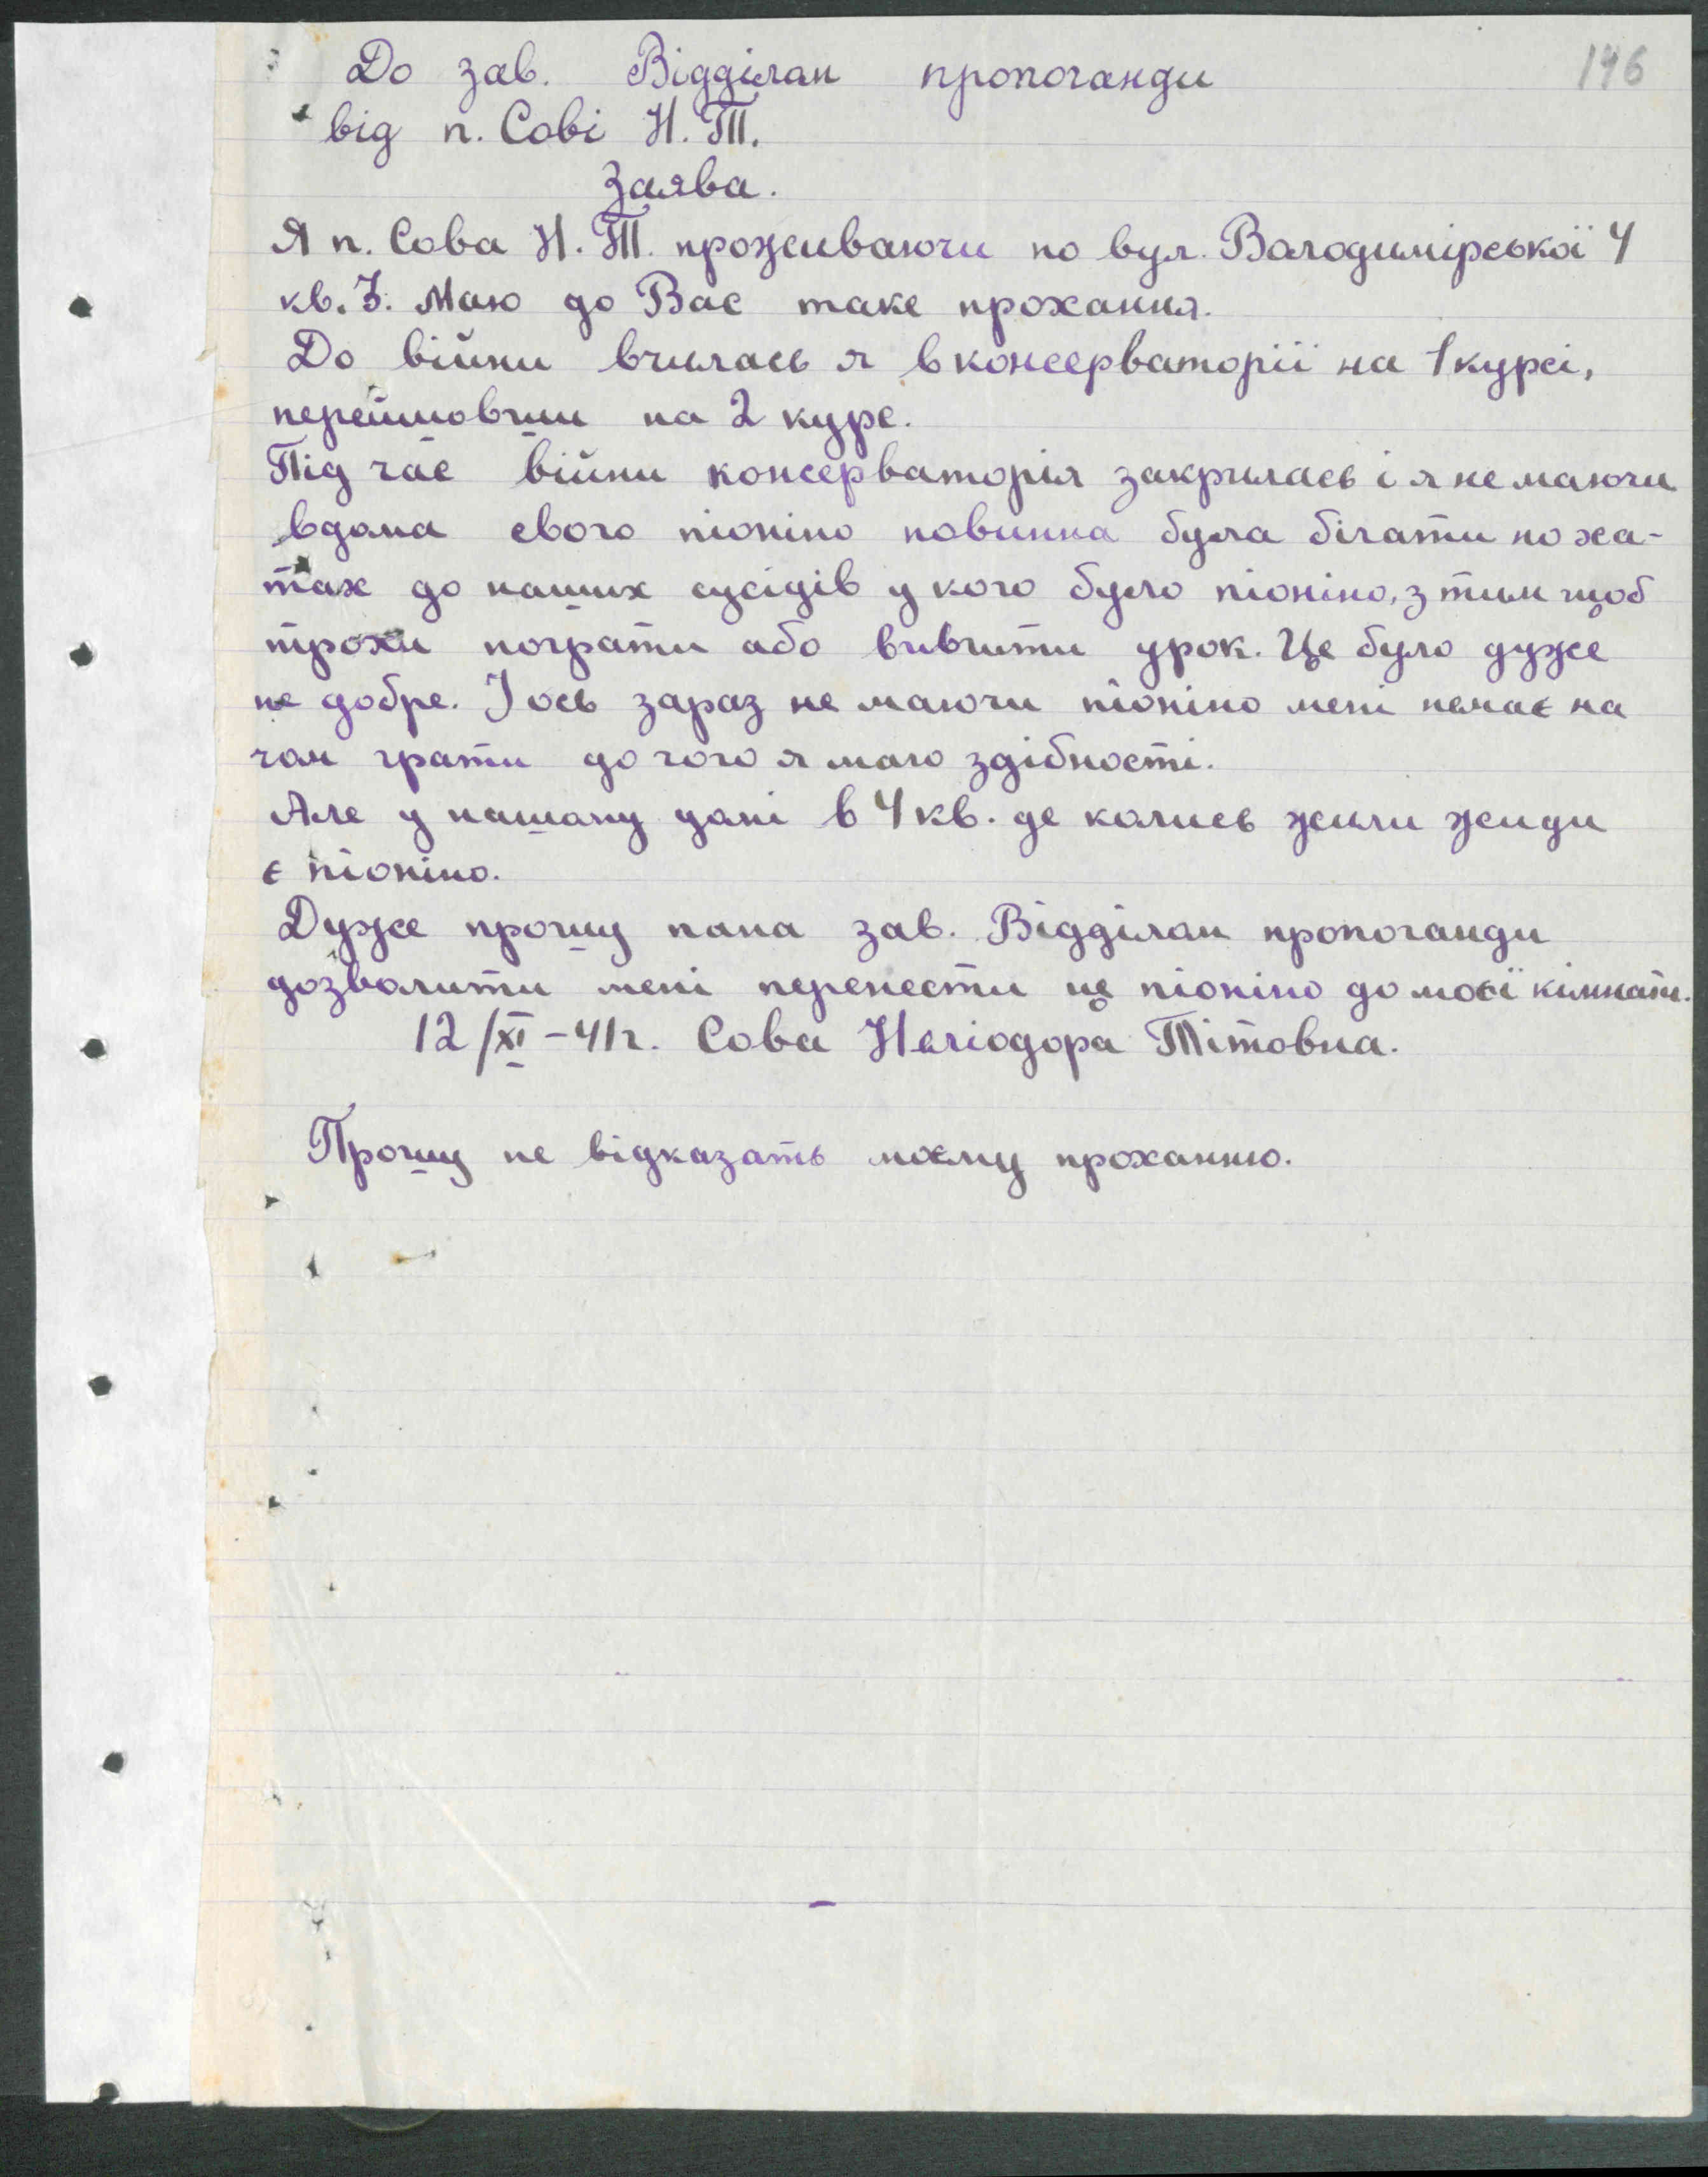 146
До зав. Відділам пропоганди
від п. Сові Н. Т.
Заява.
Я п. Сова Н. Т. проживаючи по вул. Володимірської 4
кв. 7. Маю до Вас таке прохання.
До війни вчилась я в консерваторії на 1 курсі,
перейшовши на 2 курс.
Під час війни консерваторія закрилась і я не маючи
вдома свого піоніно повинна була бігати по ха-
тах до наших сусідів у кого було піоніно, з тим щоб
трохи пограти або вивчити урок. Це було дуже
не добре. І ось зараз не маючи піоніно мені немає на
чом грати до чого я маю здібності.
Але у нашому домі в 4 кв. де колись жили жиди
є піоніно.
Дуже прошу пана зав. Відділам пропоганди
дозволити мені перенести це піоніно до моєї кімнати.
12/XI – 41 г. Сова Неліодора Тітовна.
Прошу не відказать моєму проханню.